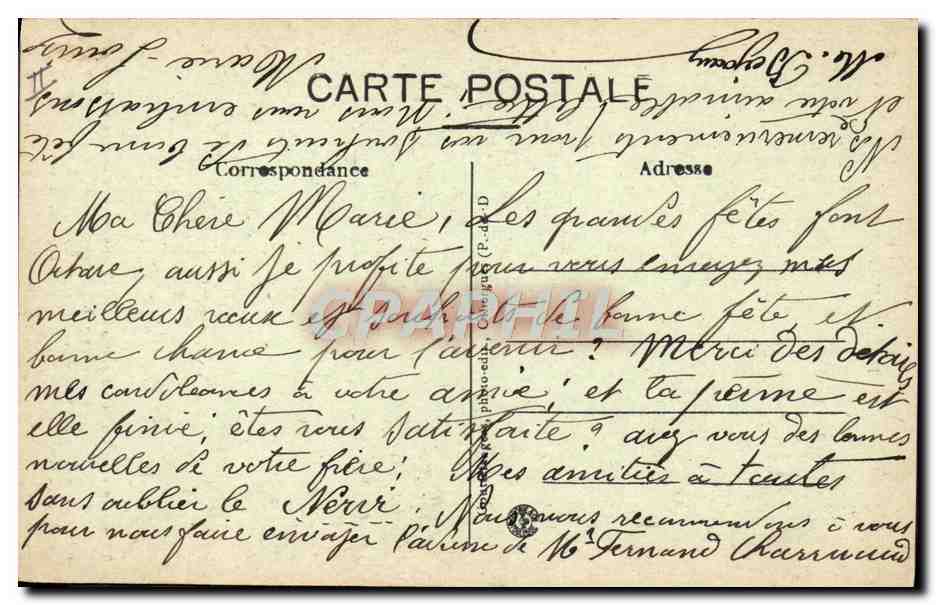 CARTE POSTALE
Correspondance
Adresse
Ma Chère Marie, Les grandes fêtes font
aussi je profite pour vous envoyez mes
meilleurs vœux et souhaits de bonne fête et
bonne chance pour l'avenir? Merci des détails
mes condoléances à votre amie; et la ferme est
elle finie, êtes vous satisfaite? avez vous des bonnes
nouvelles de votre frère; Mes amitiés à toutes
sans oublier le Nous vous recommendons à vous
pour nous faire envoyer l'adresse de Mr Fernand
CPAPHIL
photo-edit., (P.-de-D
Nos remerciements pour vos souhaits de bonne fête
et votre aimable lettre. Nous vous embrassons
Marie-Louise
II